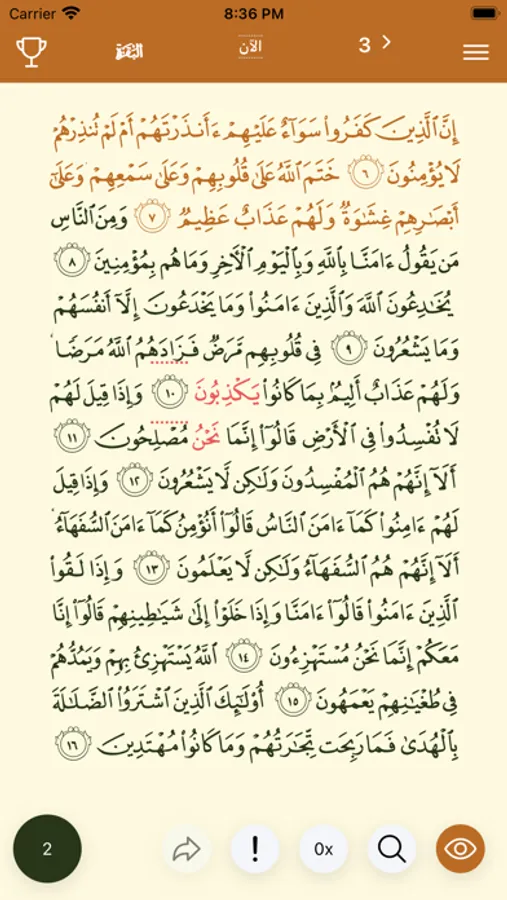 Carrier 8:36 PM
البقرة الآن 3
إِنَّ ٱلَّذِينَ كَفَرُوا۟ سَوَآءٌ عَلَيْهِمْ ءَأَنذَرْتَهُمْ أَمْ لَمْ تُنذِرْهُمْ
لَا يُؤْمِنُونَ ٦ خَتَمَ ٱللَّهُ عَلَىٰ قُلُوبِهِمْ وَعَلَىٰ سَمْعِهِمْ وَعَلَىٰٓ
أَبْصَـٰرِهِمْ غِشَـٰوَةٌ وَلَهُمْ عَذَابٌ عَظِيمٌ ٧ وَمِنَ ٱلنَّاسِ
مَن يَقُولُ ءَامَنَّا بِٱللَّهِ وَبِٱلْيَوْمِ ٱلْـَٔاخِرِ وَمَا هُم بِمُؤْمِنِينَ ٨
يُخَـٰدِعُونَ ٱللَّهَ وَٱلَّذِينَ ءَامَنُوا۟ وَمَا يَخْدَعُونَ إِلَّآ أَنفُسَهُمْ
وَمَا يَشْعُرُونَ ٩ فِى قُلُوبِهِم مَّرَضٌ فَزَادَهُمُ ٱللَّهُ مَرَضًا
وَلَهُمْ عَذَابٌ أَلِيمٌۢ بِمَا كَانُوا۟ يَكْذِبُونَ ١٠ وَإِذَا قِيلَ لَهُمْ
لَا تُفْسِدُوا۟ فِى ٱلْأَرْضِ قَالُوٓا۟ إِنَّمَا نَحْنُ مُصْلِحُونَ ١١
أَلَآ إِنَّهُمْ هُمُ ٱلْمُفْسِدُونَ وَلَـٰكِن لَّا يَشْعُرُونَ ١٢ وَإِذَا قِيلَ
لَهُمْ ءَامِنُوا۟ كَمَآ ءَامَنَ ٱلنَّاسُ قَالُوٓا۟ أَنُؤْمِنُ كَمَآ ءَامَنَ ٱلسُّفَهَآءُ
أَلَآ إِنَّهُمْ هُمُ ٱلسُّفَهَآءُ وَلَـٰكِن لَّا يَعْلَمُونَ ١٣ وَإِذَا لَقُوا۟
ٱلَّذِينَ ءَامَنُوا۟ قَالُوٓا۟ ءَامَنَّا وَإِذَا خَلَوْا۟ إِلَىٰ شَيَـٰطِينِهِمْ قَالُوٓا۟ إِنَّا
مَعَكُمْ إِنَّمَا نَحْنُ مُسْتَهْزِءُونَ ١٤ ٱللَّهُ يَسْتَهْزِئُ بِهِمْ وَيَمُدُّهُمْ
فِى طُغْيَـٰنِهِمْ يَعْمَهُونَ ١٥ أُو۟لَـٰٓئِكَ ٱلَّذِينَ ٱشْتَرَوُا۟ ٱلضَّلَـٰلَةَ
بِٱلْهُدَىٰ فَمَا رَبِحَت تِّجَـٰرَتُهُمْ وَمَا كَانُوا۟ مُهْتَدِينَ ١٦
2 ! 0x